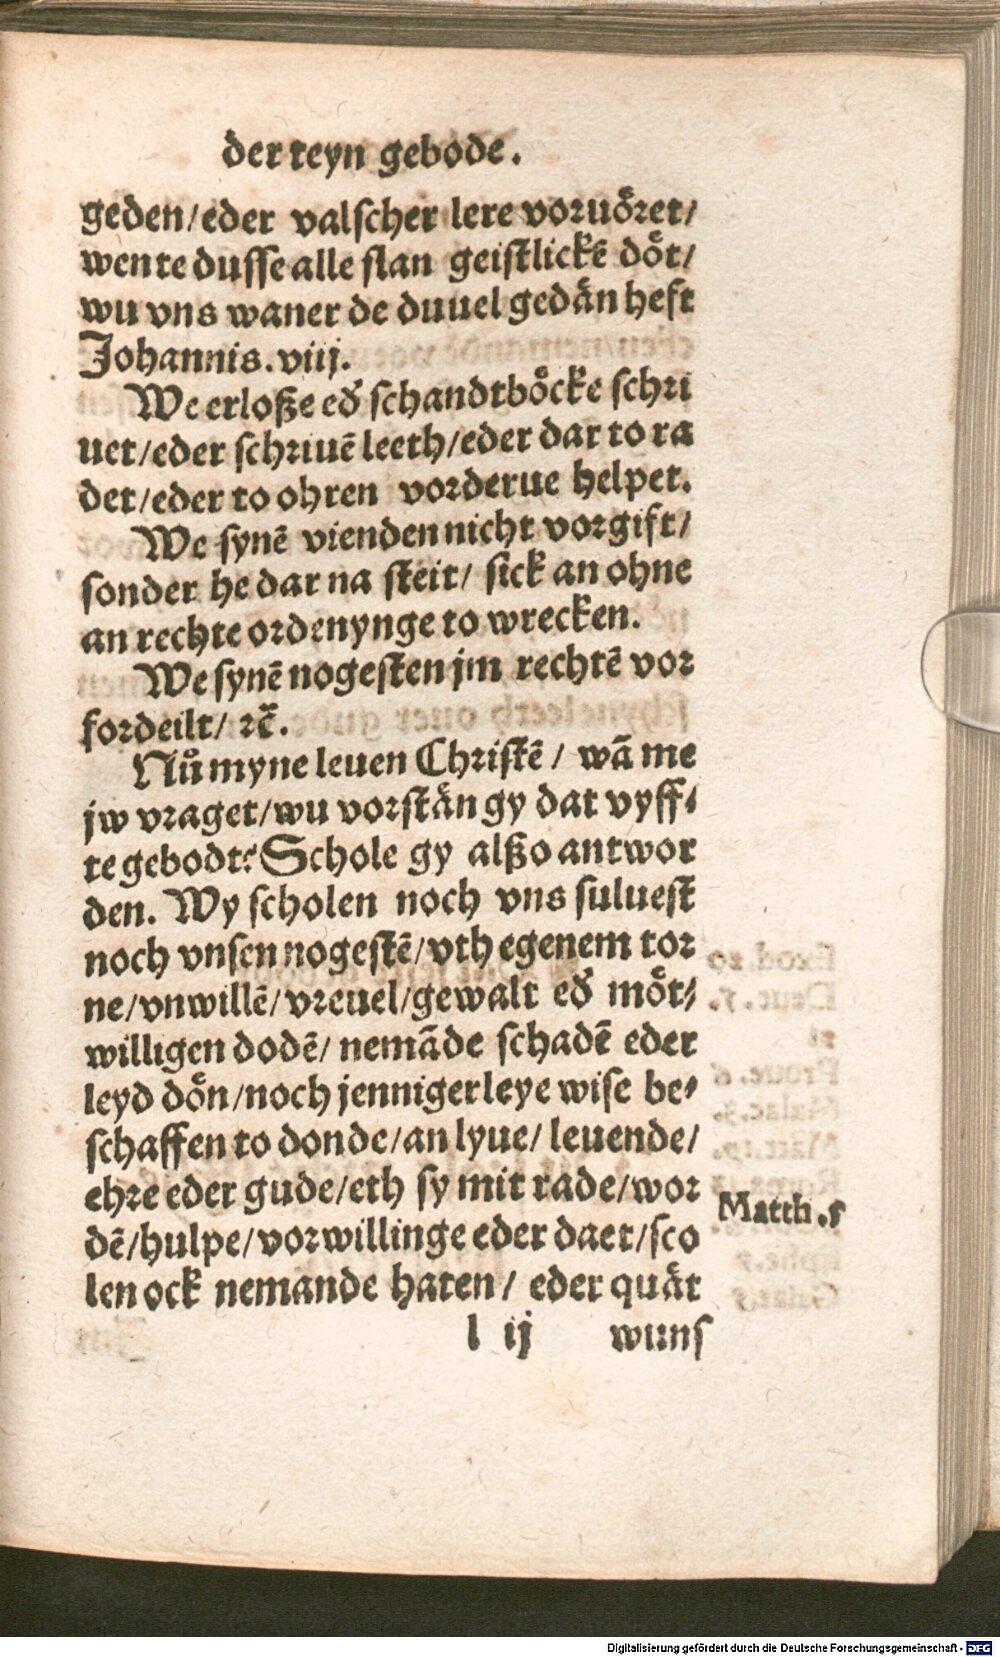 der teyn gebode.
geden/eder valscher lere voruo̊ret/
wente dusse alle slan geistlickē do̊t/
wu vns waner de duuel gedån heft
Johannis. viij.
We erloße eď schandtbo̊cke schri
uet/eder schriuē leeth/eder dar to ra
det/eder to ohren vorderue helpet.
We synē vienden nicht vorgift/
sonder he dar na steit/ sick an ohne
an rechte ordenynge to wrecken.
We synē nogesten jm rechtē vor
fordeilt/ ꝛc̄.
Nů myne leuen Christē / wā me
jw vraget/wu vorstån gy dat vyff⸗
te gebodt? Schole gy alßo antwor
den. Wy scholen noch vns suluest
noch vnsen nogestē/vth egenem tor
ne/vnwillē/vreuel/gewalt eď mo̊t⸗
willigen dodē/ nemāde schadē eder
leyd do̊n/noch jennigerleye wise be⸗
schaffen to donde/an lyue/ leuende/
ehre eder gude/eth sy mit rade/wor
dē/hulpe/vorwillinge eder daet/sco
len ock nemande haten/ eder quåt
Matth.5
l ij wuns
Digitalisierung gefördert durch die Deutsche Forschungsgemeinschaft - DFG